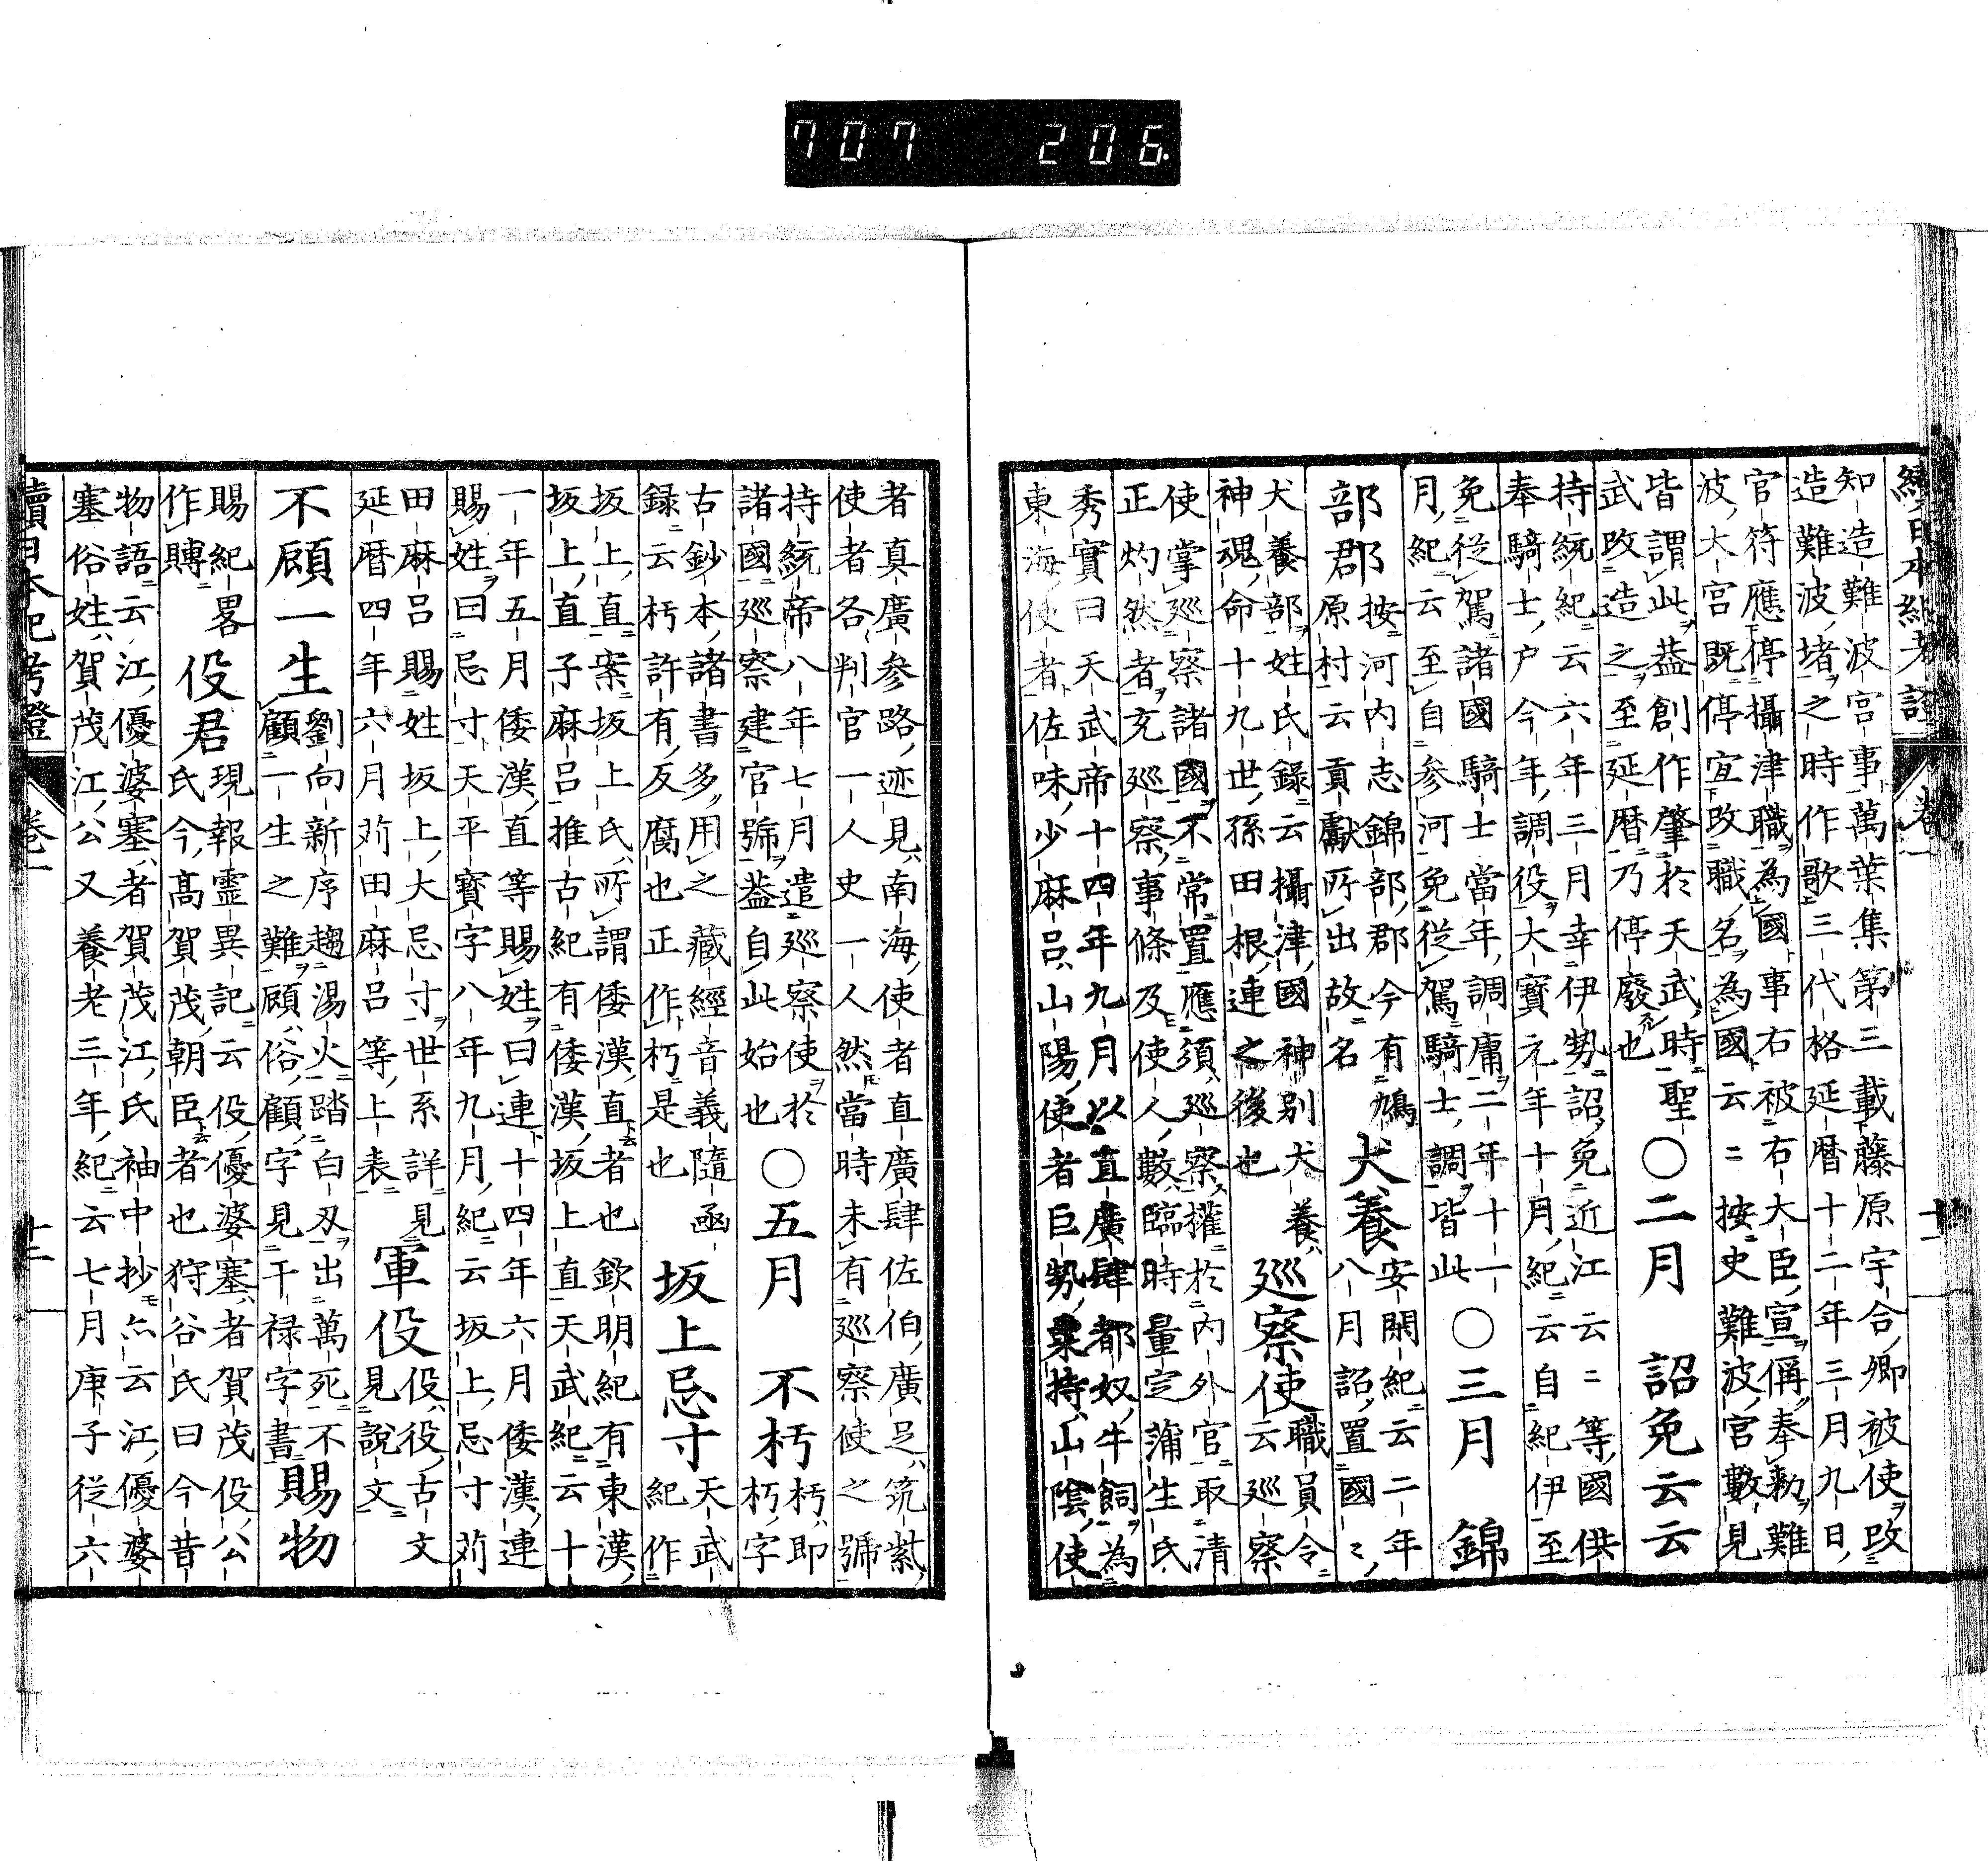 707 206
續日本紀考證 卷一 十一
知造難波宮事萬葉集第三載藤原宇合卿被使改
造難波堵之時作歌三代格延暦十二年三月九日
官符應停攝津職為國事右被右大臣宣偁奉勅難
波大宮既停宜改職名為國云〻按史難波宮數見
皆謂此葢創作肇於天武時聖
武改造之至延暦乃停廢也
〇二月 詔免云云
持統紀云六年三月幸伊勢詔免近江云〻等國供
奉騎士戸今年調役大寶元年十月紀云自紀伊至
免從駕諸國騎士當年調庸二年十一
月紀云至自参河免從駕騎士調皆此
〇三月 錦
部郡
按河内志錦部郡今有鳩
原村云貢獻所出故名
犬養
安閑紀云二年
八月詔置國〻
犬養部姓氏錄云攝津國神別犬養
神魂命十九世孫田根連之後也
巡察使
職員令
云巡察
使掌巡察諸國不常置應須巡察權於内外官取清
正灼然者充巡察事條及使人數臨時量定蒲生氏
秀實曰天武帝十四年九月以直廣肆都奴牛飼為
東海使者佐味少麻呂山陽使者巨勢粟持山陰使
者真廣參路迹見南海使者直廣肆佐伯廣足筑紫
使者各判官一人史一人然當時未有巡察使之號
持統帝八年七月遣巡察使於
諸國巡察建官號葢自此始也
〇五月 不朽
朽即
朽字
古鈔本諸書多用之藏經音義隨凾
録云朽許有反腐也正作朽是也
坂上忌寸
天武
紀作
坂上直案坂上氏所謂倭漢直者也欽明紀有東漢
坂上直子麻呂推古紀有倭漢坂上直天武紀云十
一年五月倭漢直等賜姓曰連十四年六月倭漢連
賜姓曰忌寸天平寳字八年九月紀云坂上忌寸苅
田麻呂賜姓坂上大忌寸世系詳見
延暦四年六月苅田麻呂等上表
軍役
役役古文
見說文
不顧一生
劉向新序趨湯火踏白刄出萬死不
顧一生之難顧俗顧字見干禄字書
賜物
賜紀畧
作賻
役君
現報靈異記云役優婆塞者賀茂役公
氏今髙賀茂朝臣者也狩谷氏曰今昔
物語云江優婆塞者賀茂江氏袖中抄亦云江優婆
塞俗姓賀茂江公又養老三年紀云七月庚子從六
續日本紀考證 卷一 十二